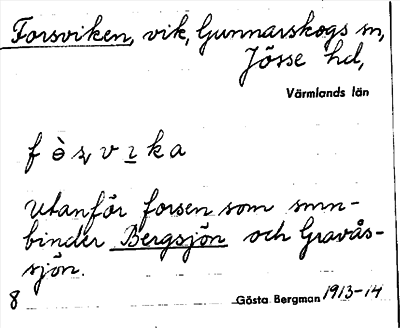 Forsviken, vik, Gunnarskogs sn,
Jösse hd,
Värmlands län
Utanför forsen som smn-
binder Bergsjön och Gravås-
sjön.
8
Gösta Bergman 1913-14